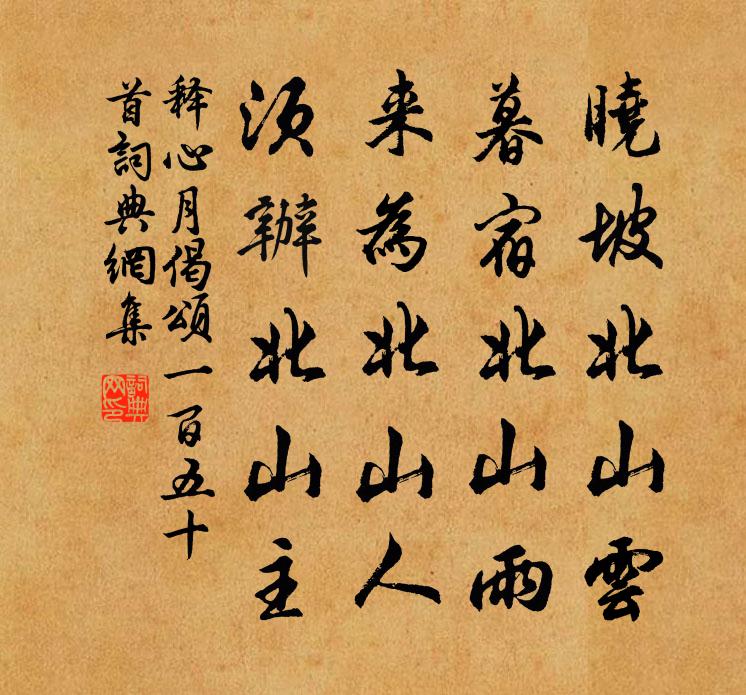 曉坡北山雲
暮宿北山雨
来為北山人
須辦北山主
释心月偈頌一百五十
首詞典網集
詞典網印